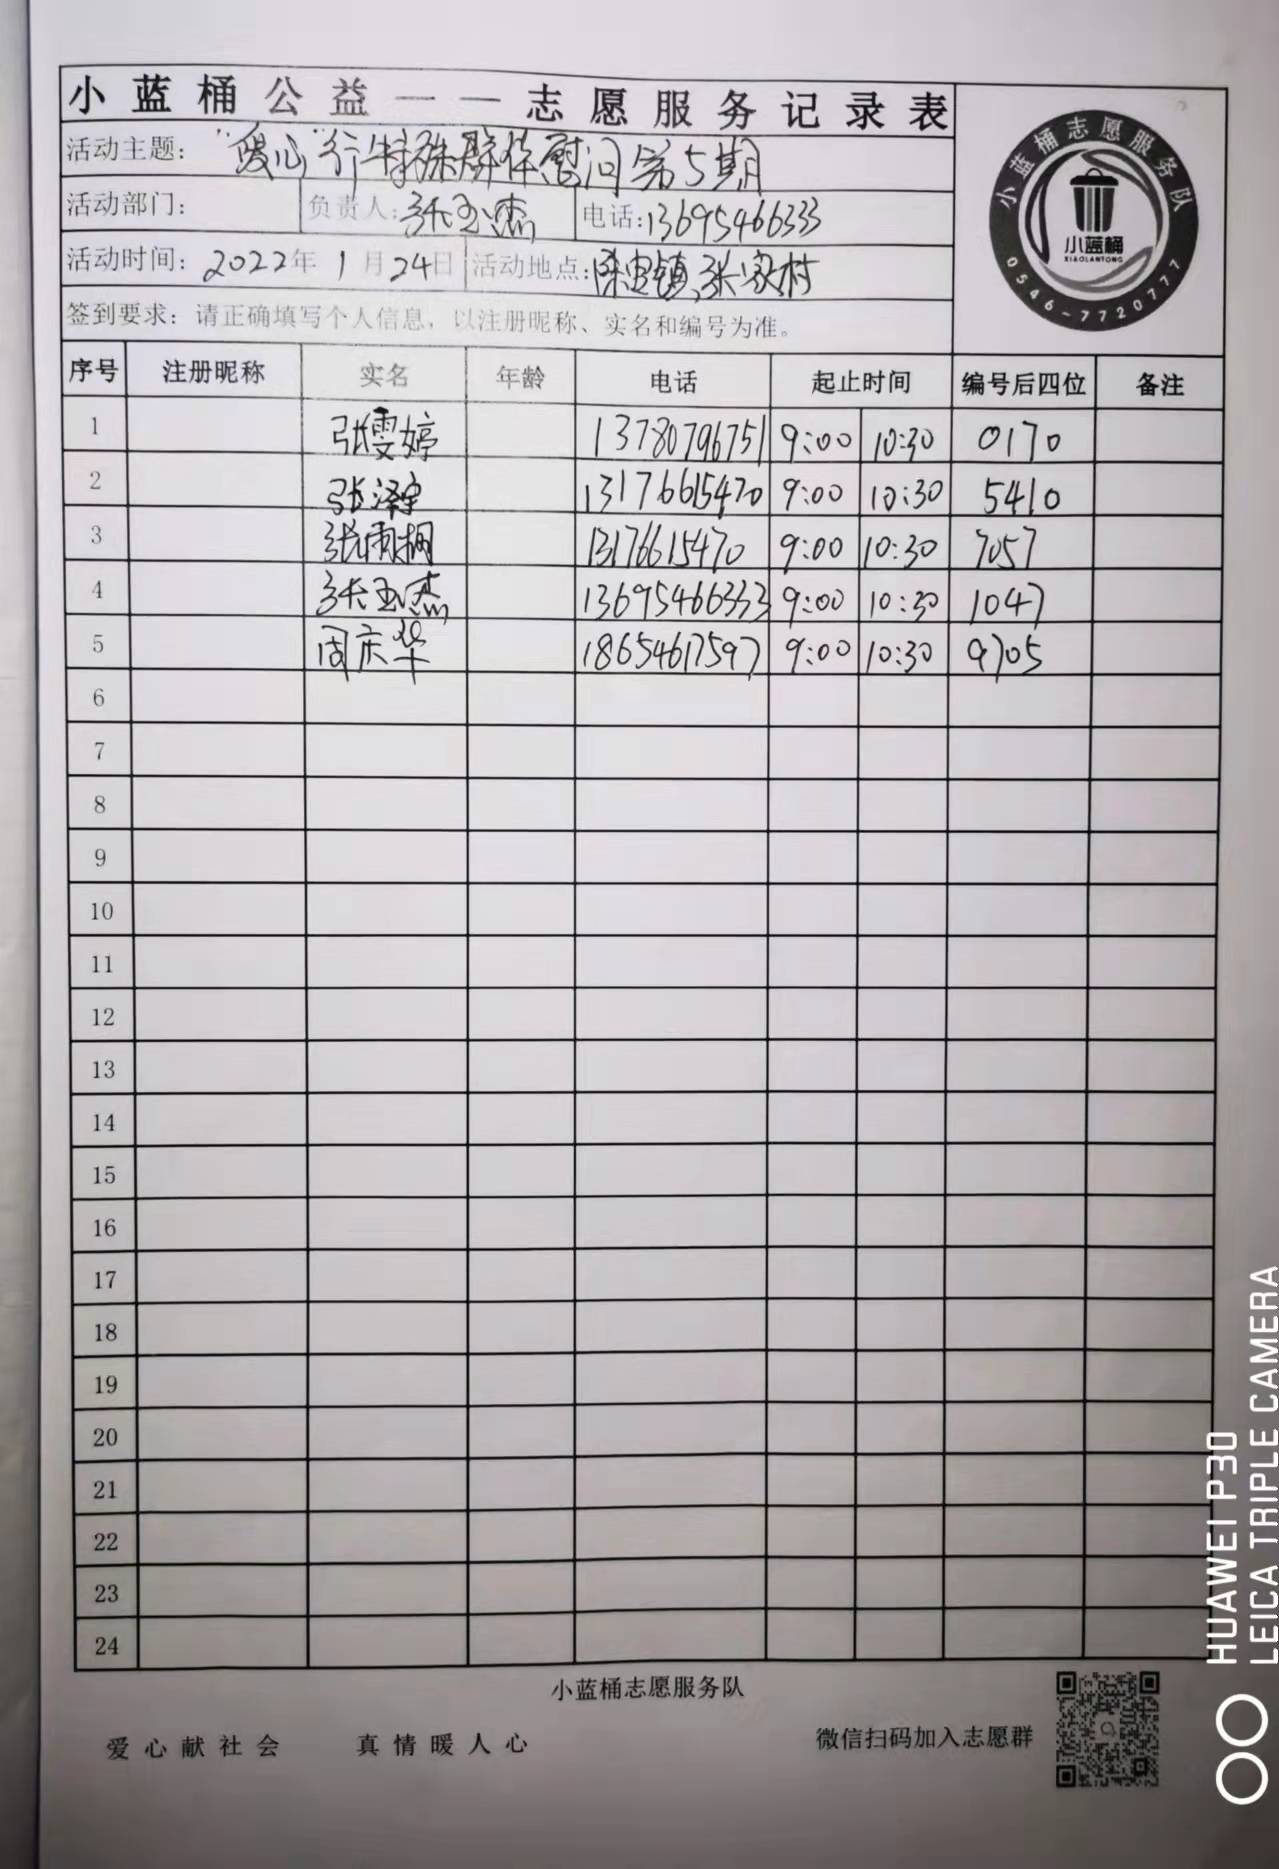 小蓝桶公益——志愿服务记录表
活动主题："暖心"行特殊群体慰问第5期
活动部门： 负责人：张玉杰 电话：13695466333
活动时间：2022年1月24日 活动地点：陈官镇,张家村
签到要求：请正确填写个人信息，以注册昵称、实名和编号为准。
小蓝桶志愿服务队
小蓝桶
XIAOLANTONG
0546-7720777
序号 注册昵称 实名 年龄 电话 起止时间 编号后四位 备注
1 张雯婷 13780796751 9:00 10:30 0170
2 张泽宇 13176615470 9:00 10:30 5410
3 张雨桐 13176615470 9:00 10:30 7057
4 张玉杰 13695466333 9:00 10:30 1047
5 周庆华 18654617597 9:00 10:30 9705
6
7
8
9
10
11
12
13
14
15
16
17
18
19
20
21
22
23
24
小蓝桶志愿服务队
爱心献社会 真情暖人心 微信扫码加入志愿群
HUAWEI P30
LEICA TRIPLE CAMERA